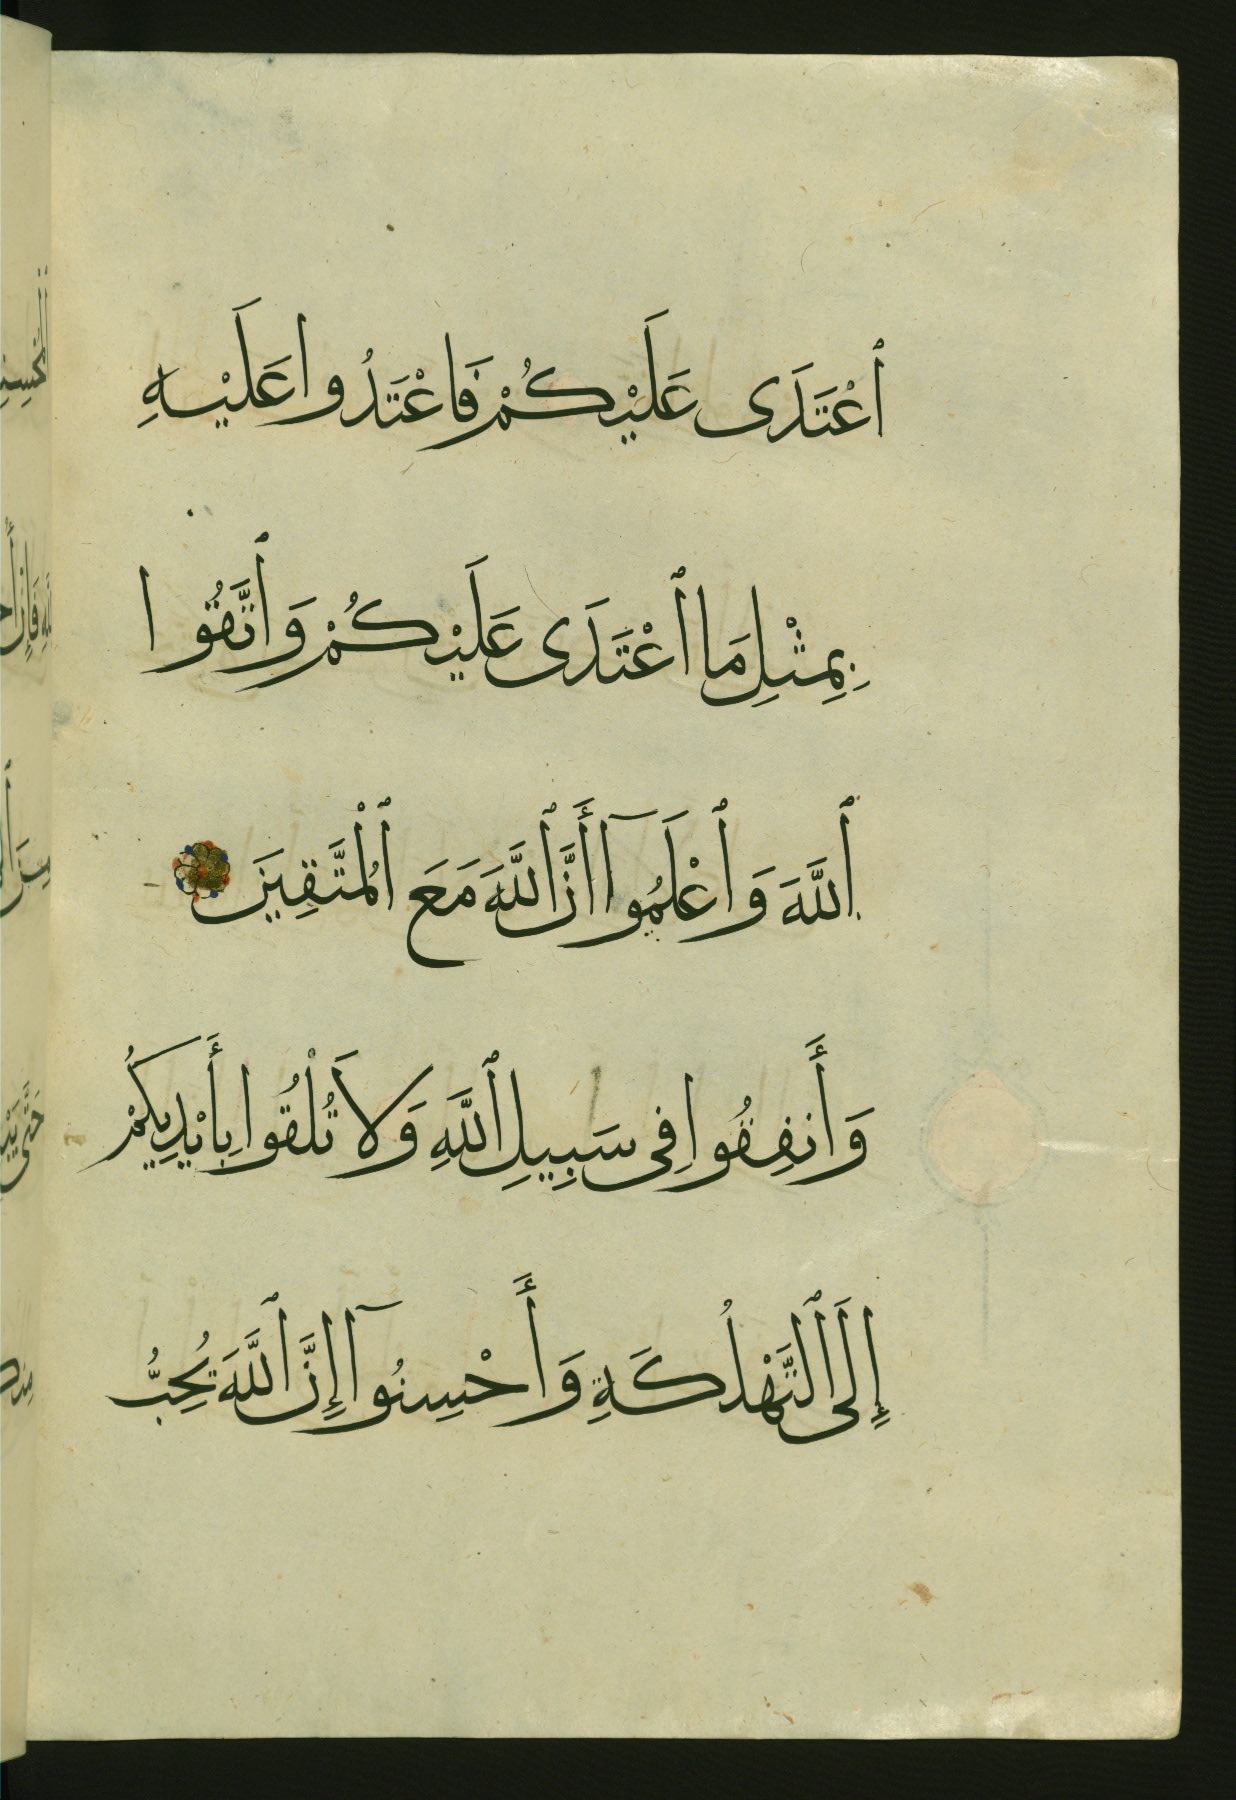 ٱعْتَدَى عَلَيْكُمْ فَاعْتَدُوا عَلَيْهِ
بِمِثْلِ مَا ٱعْتَدَى عَلَيْكُمْ وَٱتَّقُوا
ٱللَّهَ وَٱعْلَمُوٓا أَنَّ ٱللَّهَ مَعَ ٱلْمُتَّقِينَ
وَأَنفِقُوا فِى سَبِيلِ ٱللَّهِ وَلَا تُلْقُوا بِأَيْدِيكُمْ
إِلَى ٱلتَّهْلُكَةِ وَأَحْسِنُوٓا إِنَّ ٱللَّهَ يُحِبُّ